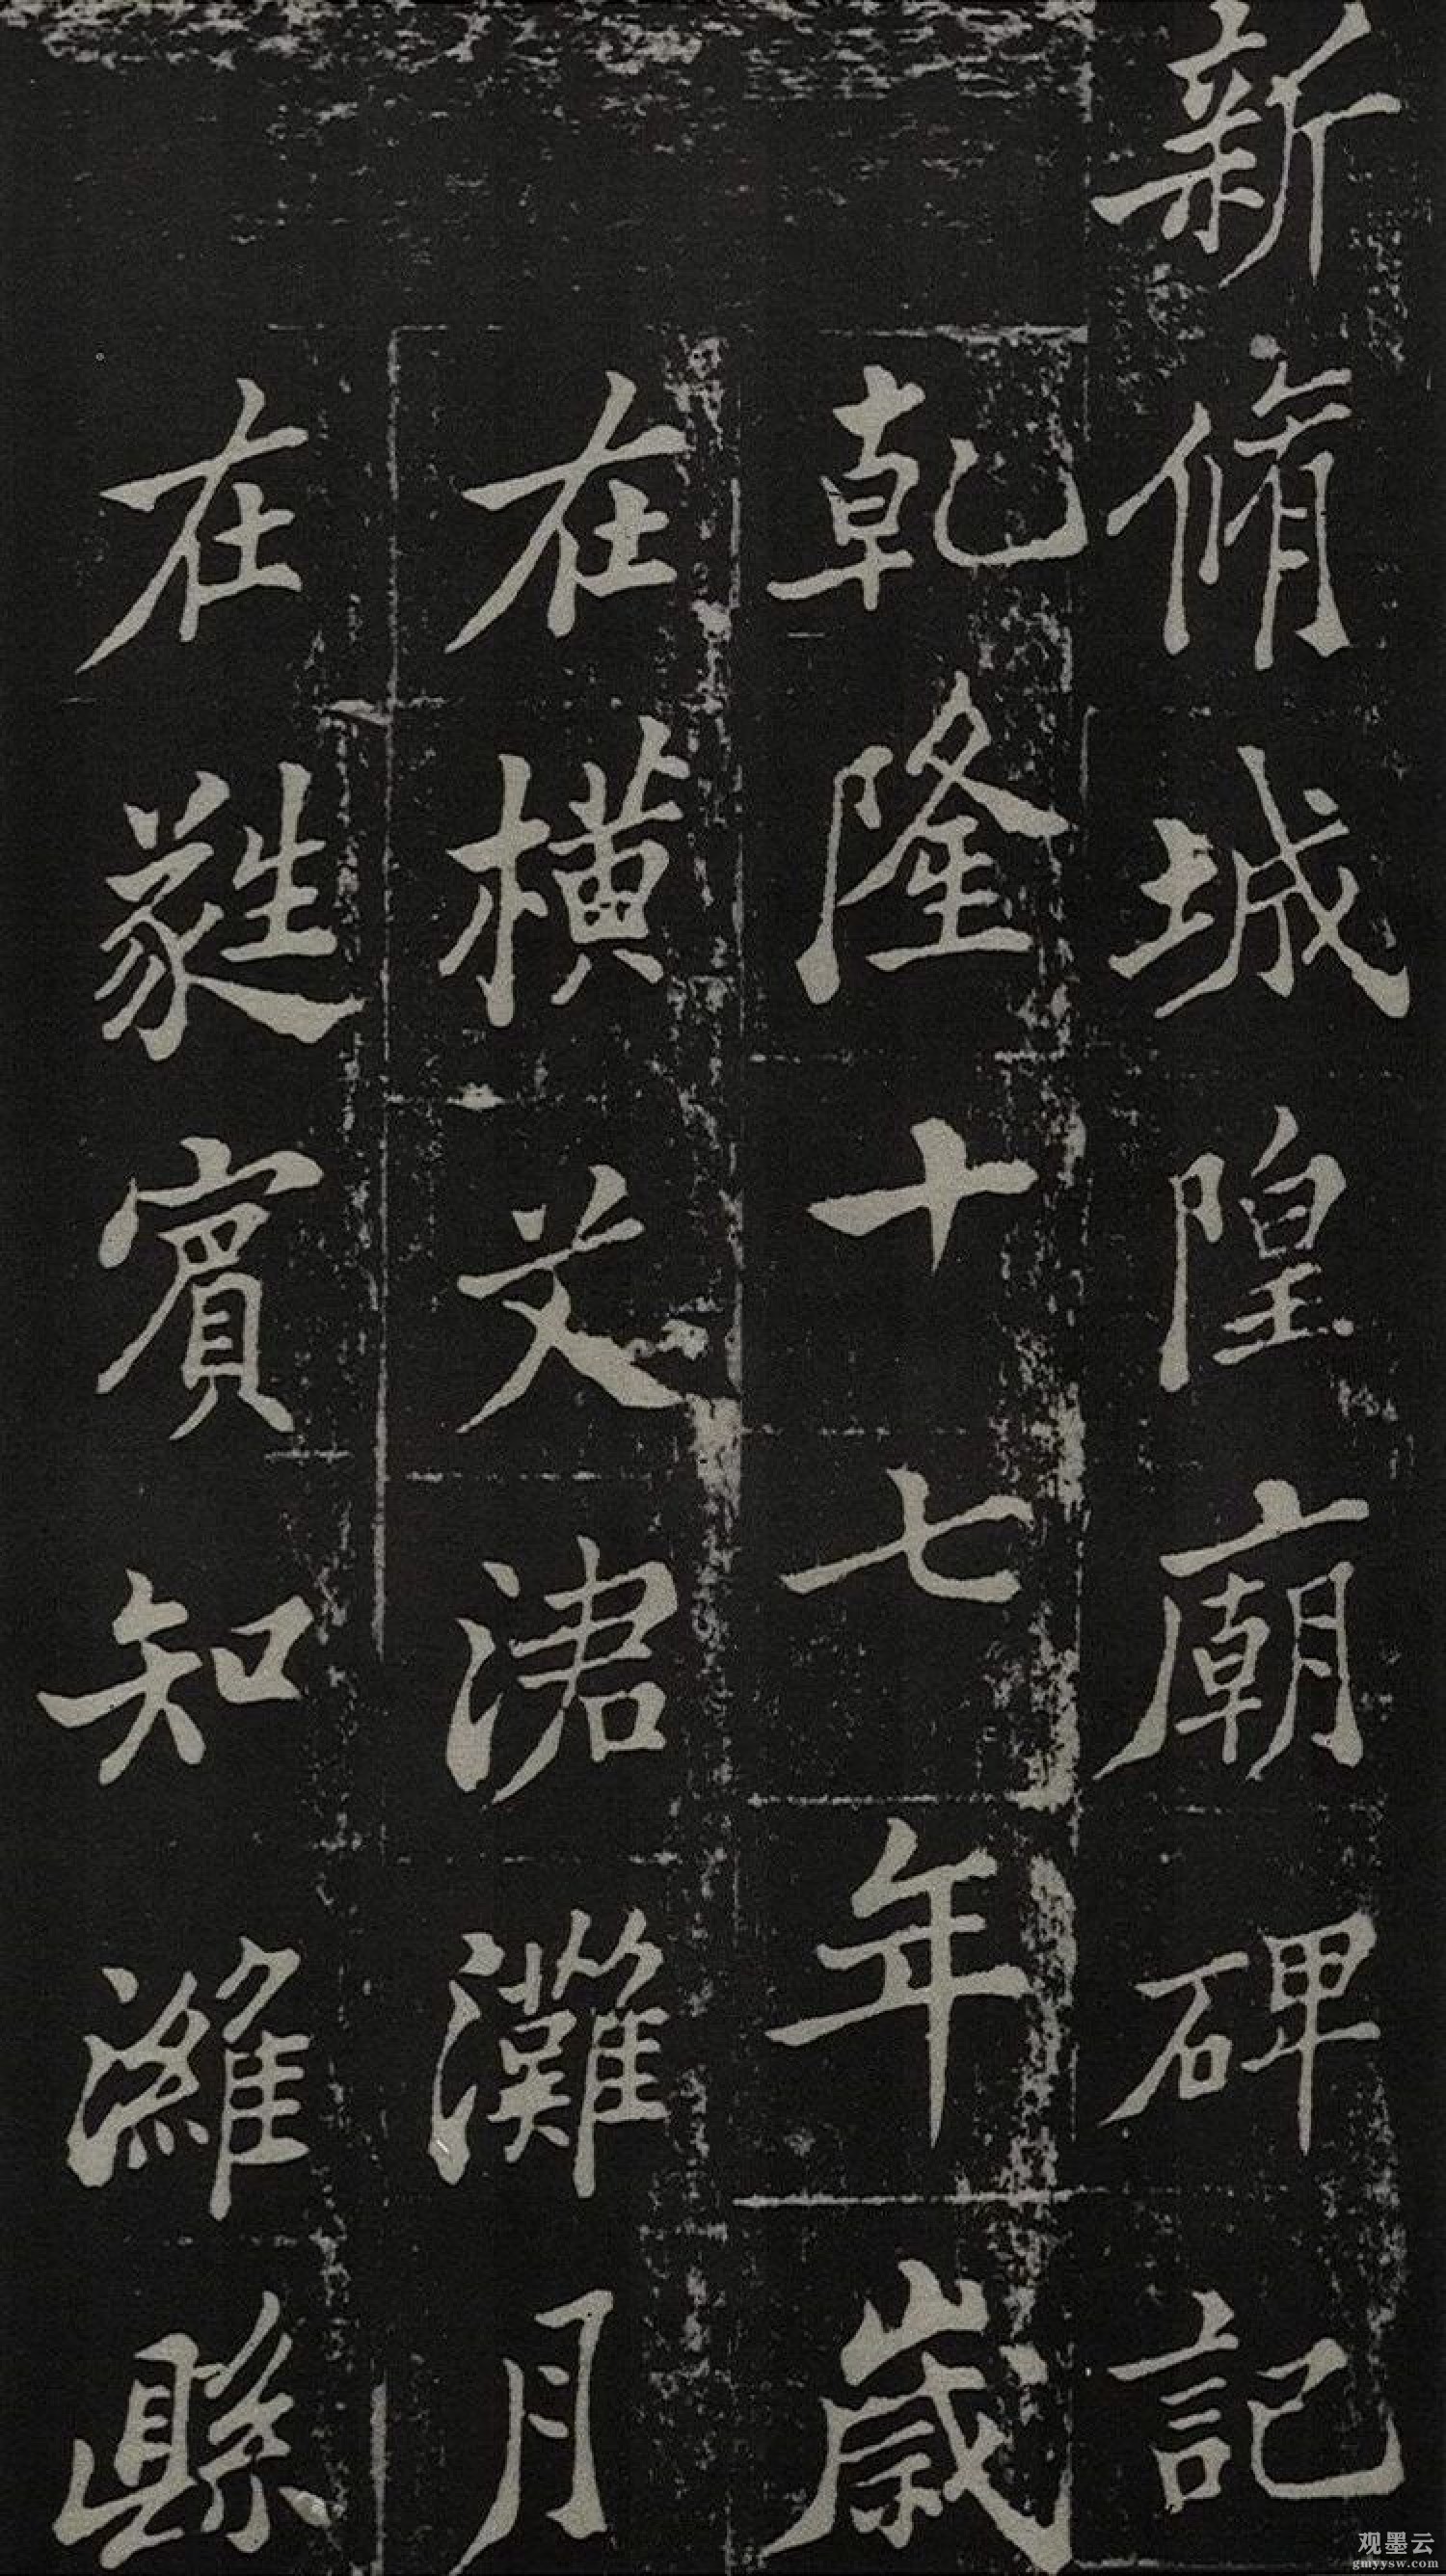 新脩城隍廟碑記
乾隆十七年歲
在橫艾涒灘月
在蕤賓知濰縣
观墨云
gmyysw.com